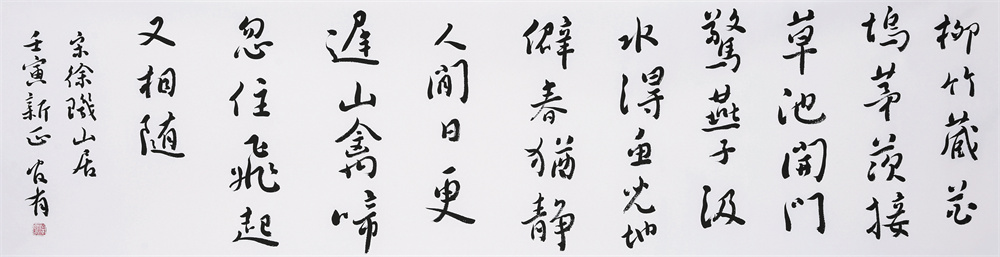 柳竹藏花
塢茅茨接
草池開門
驚燕子汲
水得魚兒地
僻春猶静
人閒日更
遲山禽啼
忽住飛起
又相随
宋徐璣山居
壬寅新正